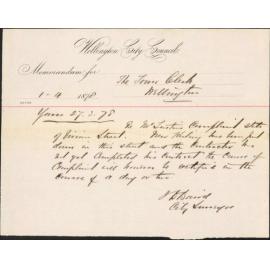 Wellington City Council
Memorandum for
The Town Clerk
1-4 1878
Wellington
Yours 27.3.78
Re Mr Complaint state
of Street. New has been put
down in this street and the Contractor has
not yet Completed his Contract the Cause of
Complaint will however be rectified in the
Course of a day or two
J D Baird
City Surveyor